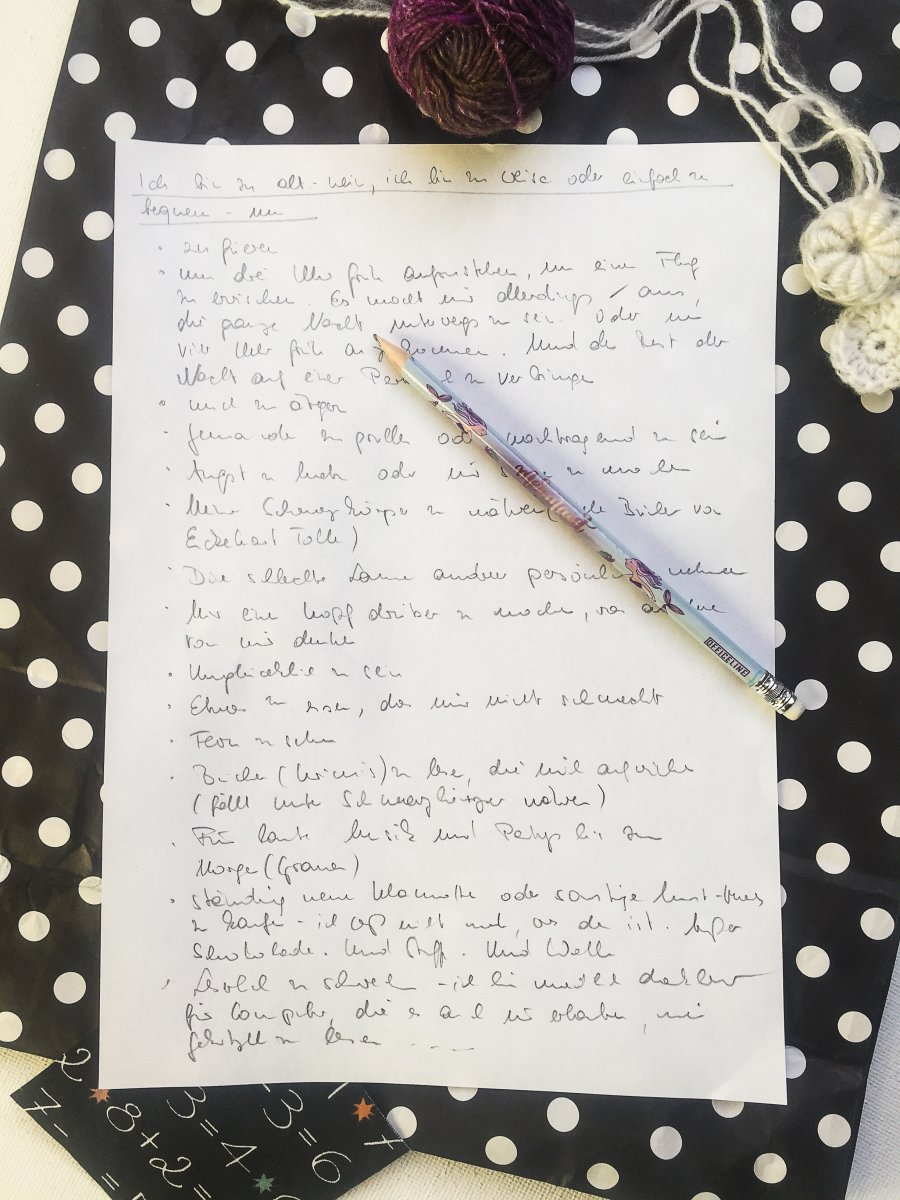 Ich bin zu alt - nein, ich bin zu weise oder einfach zu
bequem - um
• zu frieren
• um drei Uhr früh aufzustehen, um einen Flug
zu erwischen. Es macht mir allerdings aus,
die ganze Nacht unterwegs zu sein. Oder um
vier Uhr früh anzukommen. Und den Rest der
Nacht auf einer zu verbringen
• mich zu ärgern
• jemandem zu grollen oder nachtragend zu sein
• Angst zu haben oder mir zu machen
• Meinen Schmerzkörper zu nähren (Bücher von
Eckehart Tolle)
• Die schlechte Laune anderer persönlich nehmen
• Mir einen Kopf drüber zu machen, was andere
von mir denken
• Unglücklich zu sein
• Etwas zu essen, das mir nicht schmeckt
• Fern zu sehen
• Bücher (Krimis) zu lesen, die mich aufwühlen
(fällt unter Schmerzkörper nähren)
• Für laute Musik und Partys bis zum
Morgen (Grauen)
• ständig neue Klamotten oder sonstige
zu kaufen - ich mit, was da ist. Außer
Schokolade. Und Stoff. Und Wolle
• zu schreiben - ich bin dankbar
für Computer, die es mir erlauben, mein
zu lesen ....
OFFICELINE
2 3 -3 1
7- 8+2 =4 =6 +
=